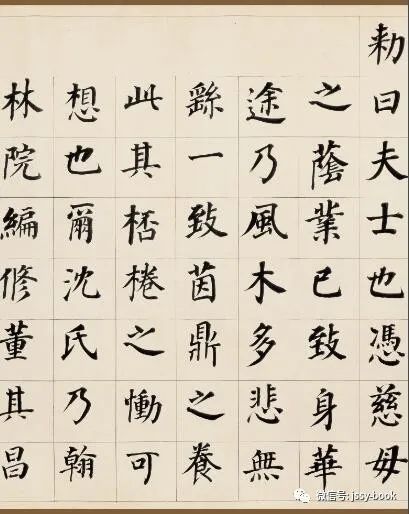 勅曰夫士也憑慈母
之蔭業已致身華
途乃風木多悲無
繇一致茵鼎之養
此其桮棬之慟可
想也爾沈氏乃翰
林院編修董其昌
微信号: jssy-book